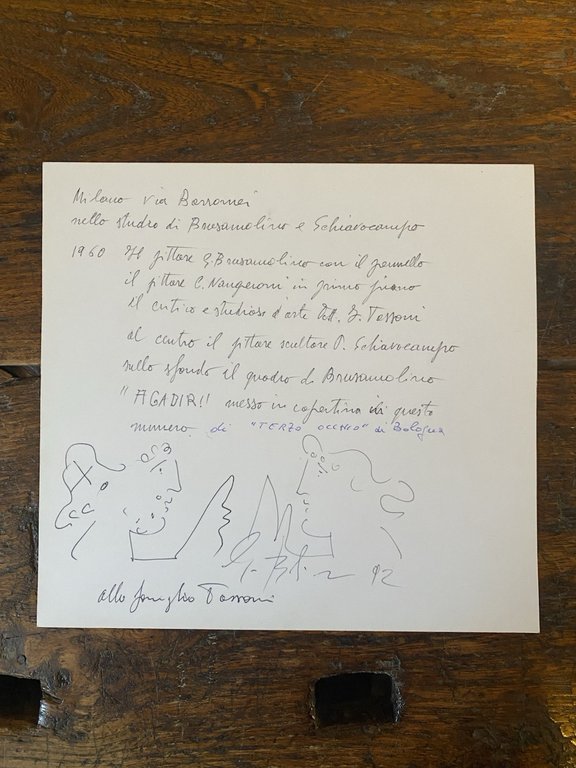 Milano via Borromei
nello studio di Brusamolino e Schiavocampo
1960 Il pittore G. Brusamolino con il pennello
il pittore C. Nangeroni in primo piano
il critico e studioso d'arte Dott. F. Tassoni
al centro il pittore scultore P. Schiavocampo
sullo sfondo il quadro di Brusamolino
"AGADIR!! messo in copertina di questo
numero di "TERZO OCCHIO" di Bologna
92
alla famiglia Tassoni